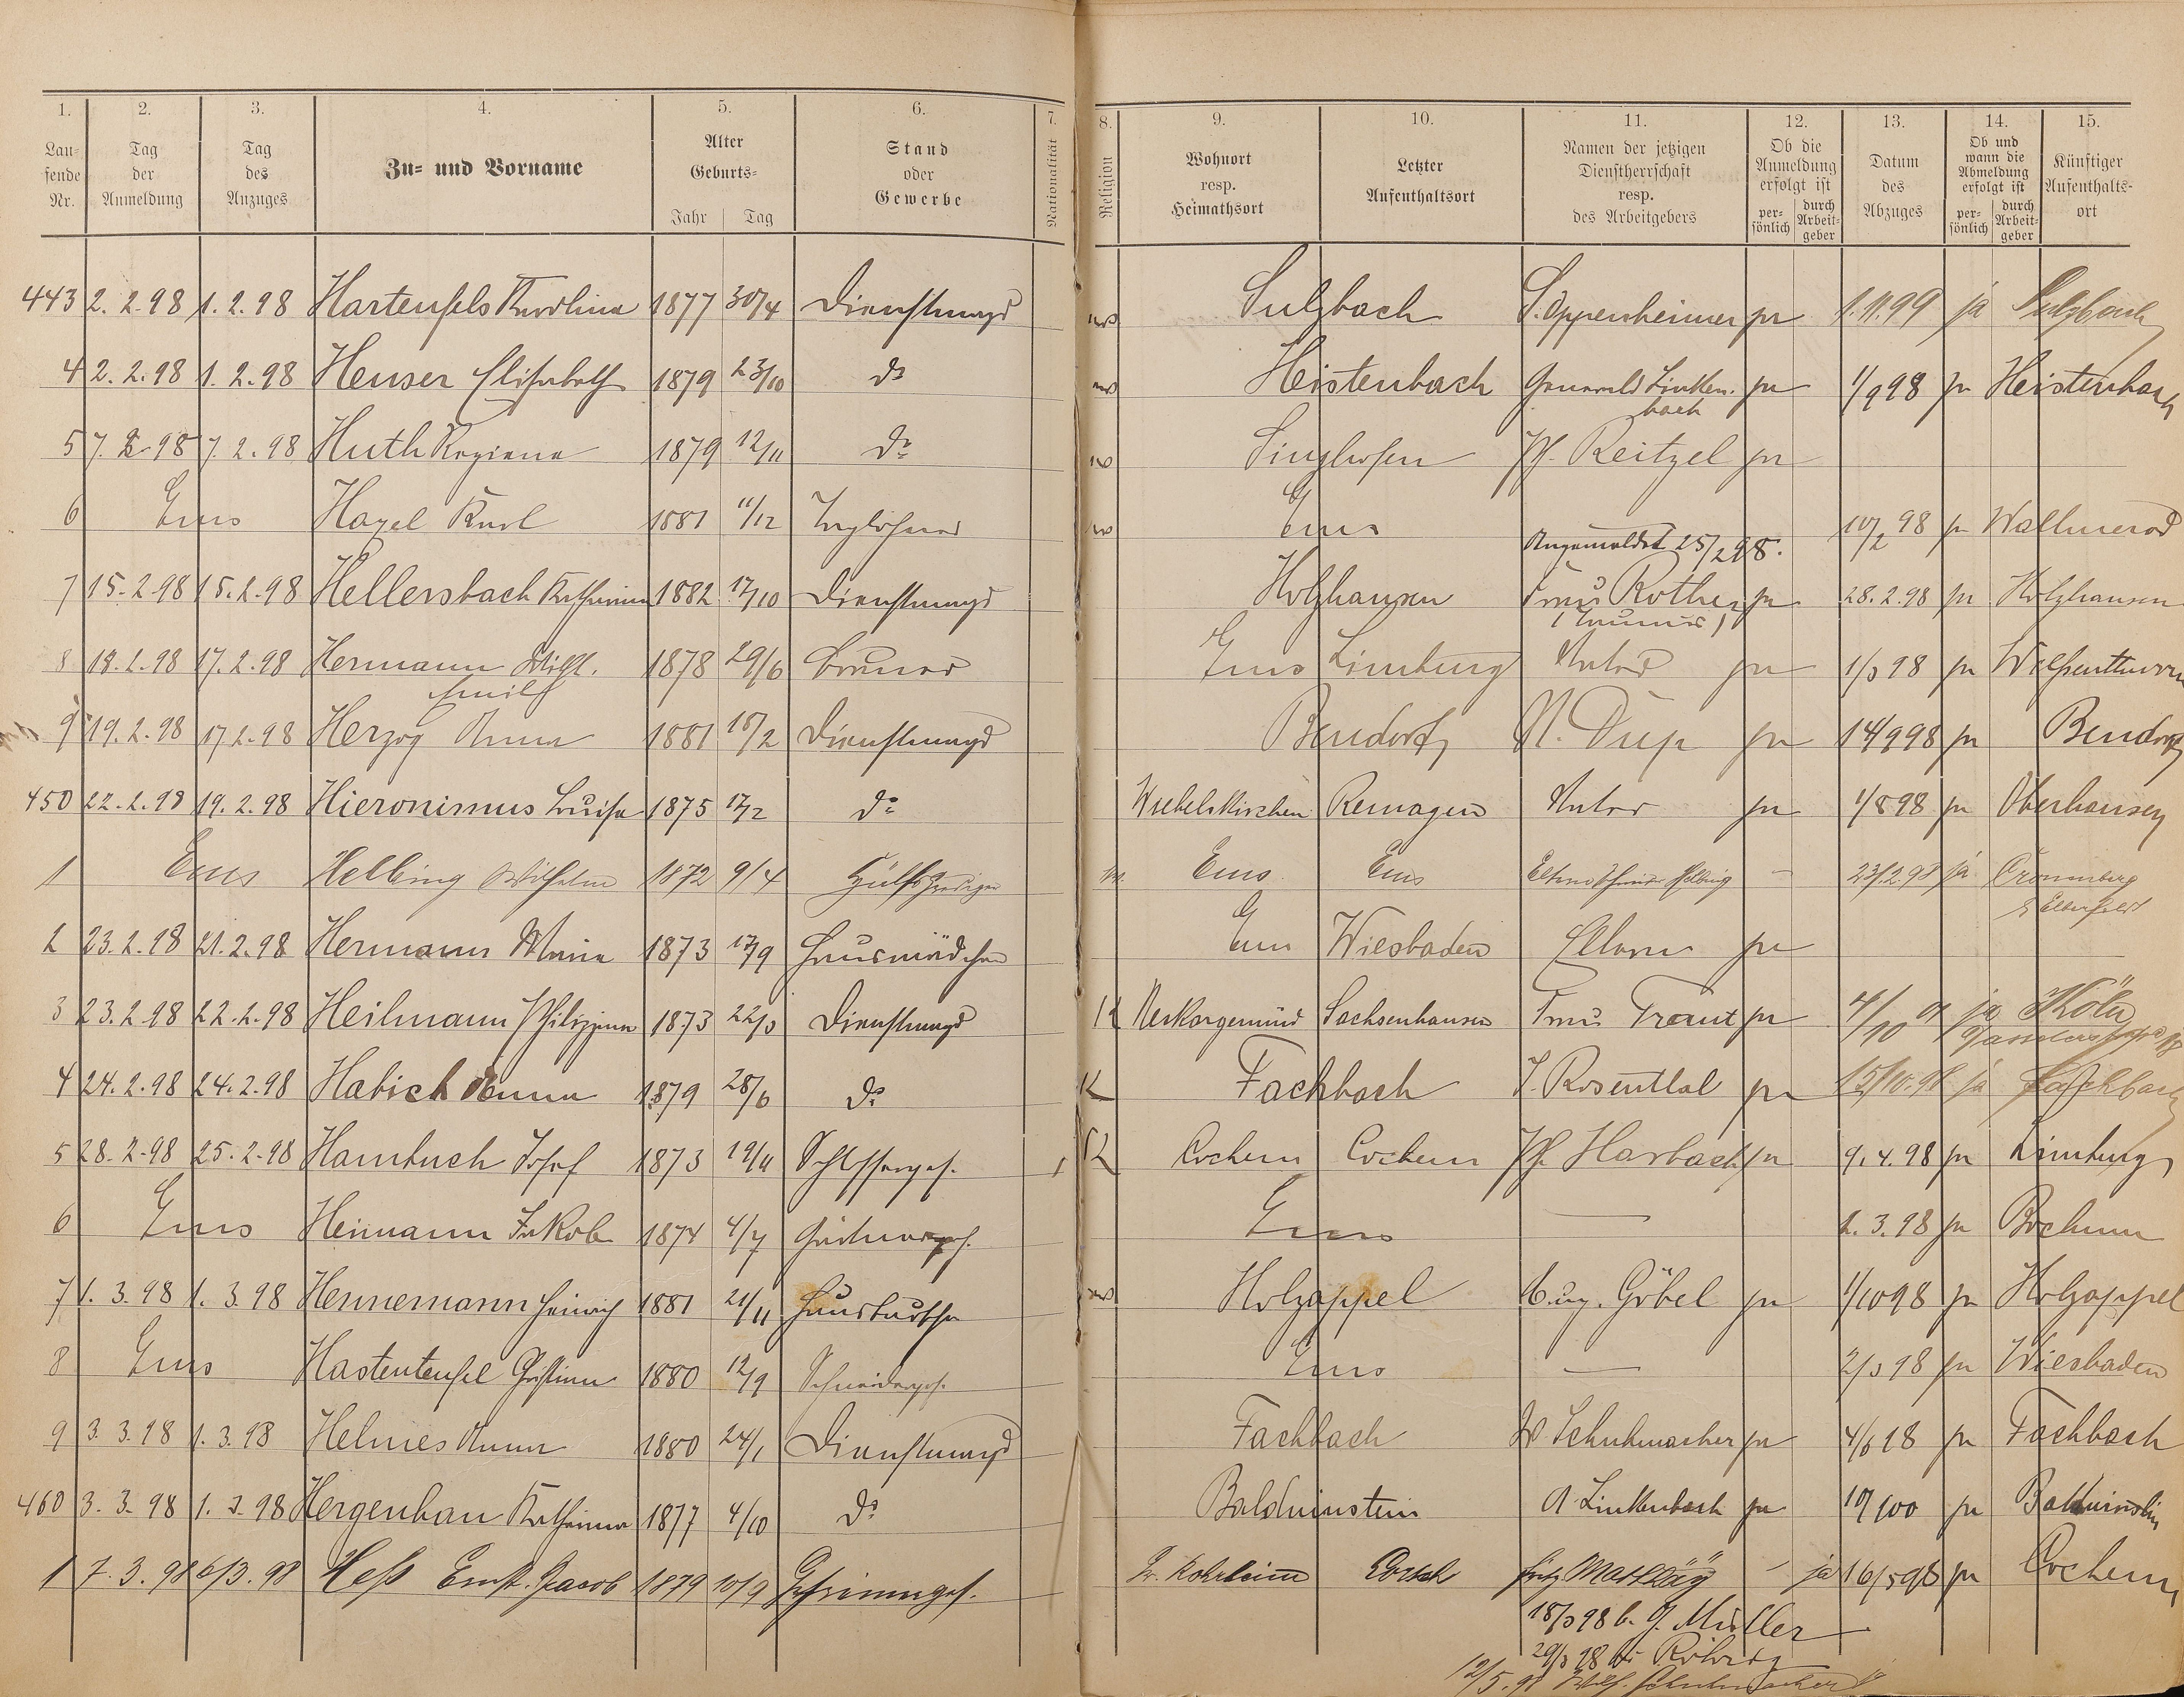 1. 2. 3. 4. 5. 6. 7. 8. 9. 10. 11. 12. 13. 14. 15.
Lau-fende Nr. Tag der Anmeldung Tag des Anzuges Zu- und Vorname Alter Geburts- Jahr Tag Stand oder Gewerbe Nationalität Religion Wohnort resp. Heimathsort Letzter Aufenthaltsort Namen der jetzigen Dienstherrschaft resp. des Arbeitgebers Ob die Anmeldung erfolgt ist per-sönlich durch Arbeit-geber Datum des Abzuges Ob und wann die Abmeldung erfolgt ist per-sönlich durch Arbeit-geber Künftiger Aufenthalts-ort
443 2.2.98 1.2.98 Hartenfels Karolina 1877 30/4 Dienstmagd Sulzbach S. Oppenheimer ja 1.11.99 ja Sulzbach
4 2.2.98 1.2.98 Heuser Elisabeth 1879 23/10 do Heistenbach Linken- ja 1/9 98 ja Heistenbach
bach
5 7.2.98 7.2.98 Huth Regiena 1879 12/11 do Singhofen Ph. Reitzel ja
6 Ems Hazel Karl 1881 11/12 Taglöhner Ems Angemeldet 25/2 98. 10/2 98 ja Wallmerod
7 15.2.98 15.2.98 Hellersbach Katharina 1882 17/10 Dienstmagd Holzhausen Frau Rother ja 28.2.98 ja Holzhausen
8 18.2.98 17.2.98 Hermann Wilh. 1878 29/6 Ems Limburg Vater ja 1/3 98 ja
Emilh
9 19.2.98 17.2.98 Herzog Anna 1881 18/2 Dienstmagd Bendorf ja 14/9 98 ja Bendorf
450 22.2.98 19.2.98 Hieronimus Luisa 1875 17/2 do Wiebelskirchen Remagen Vater ja 1/8 98 ja Oberhausen
1 Ems Helbing Wilhelm 1872 9/4 Hülfsprediger Ems Ems Helbing - 23/2.98 ja Cronenberg
b Elberfeld
2 23.2.98 21.2.98 Hermann Maria 1873 17/9 Hausmädchen Ems Wiesbaden Eltern ja
3 23.2.98 22.2.98 Heilmann Philippina 1873 22/3 Dienstmagd K Neckargemünd Sachsenhausen Frau Traut ja 4/10 01 ja Köln
4 24.2.98 24.2.98 Habich Anna 1879 28/6 do K Fachbach J. Rosenthal ja 15/10.98 ja Fachbach
5 28.2.98 25.2.98 Hambuch Josef 1873 19/11 Schlosserges. K Cochem Cochem Ph. Harbach ja 9.4.98 ja Limburg
6 Ems Heimann Jakob 1874 4/7 Ems — 2.3.98 ja Bochum
7 1.3.98 1.3.98 Hennemann Heinrich 1881 21/11 Hausbursche Holzappel Aug. Göbel ja 1/10 98 ja Holzappel
8 Ems Hastenteufel Christian 1880 12/9 Schneiderges. Ems — 2/3 98 ja Wiesbaden
9 3.3.98 1.3.98 Helmes Anna 1880 24/1 Dienstmagd Fachbach W Schuhmacher ja 4/6 98 ja Fachbach
460 3.3.98 1.3.98 Hergenhan Katharina 1877 4/10 do Balduinstein A. Linkenbach ja 10/1 00 ja Balduinstein
1 7.3.98 6/3.98 Heß Ernst Jacob 1879 10/9 Fritz - ja 16/5 98 ja Cochem
18/3 98 b. G. Müller
29/3 98 bei Röhrig
12/5.98 Wilh. Schuhmacher